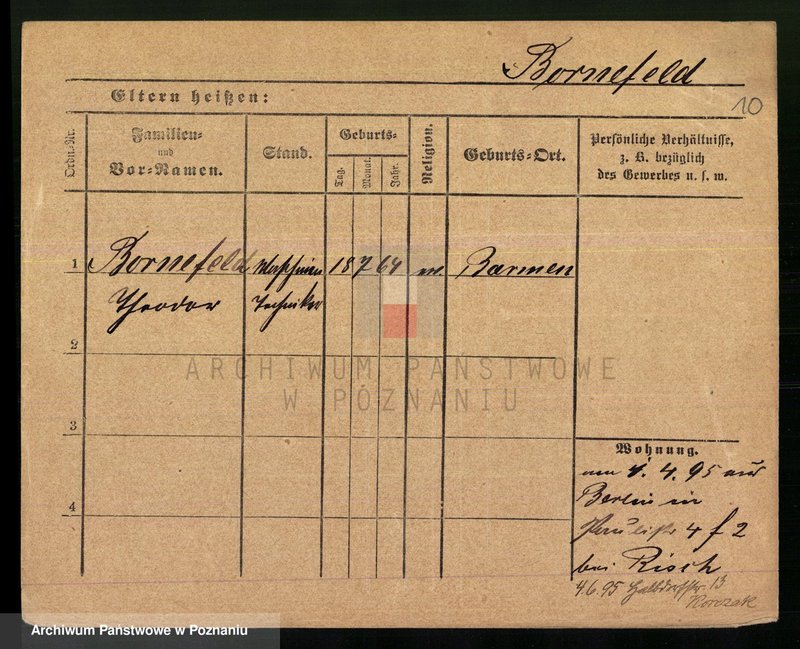 Bornefeld
10
Eltern heißen:
Ordn.-Nr.
Familien-
und
Vor-Namen.
Stand.
Geburts-
Tag.
Monat.
Jahr.
Religion.
Geburts-Ort.
Persönliche Verhältnisse,
z. B. bezüglich
des Gewerbes u. s. w.
1 Bornefeld Maschinen 18 7 64 ev. Barmen
Theodor Techniker
2
3
4
ARCHIWUM PAŃSTWOWE
W POZNANIU
Wohnung.
4. 95 aus
Berlin in
Paulistr 4 f 2
bei Risch
4.6.95 Halbdorfstr. 13
Archiwum Państwowe w Poznaniu